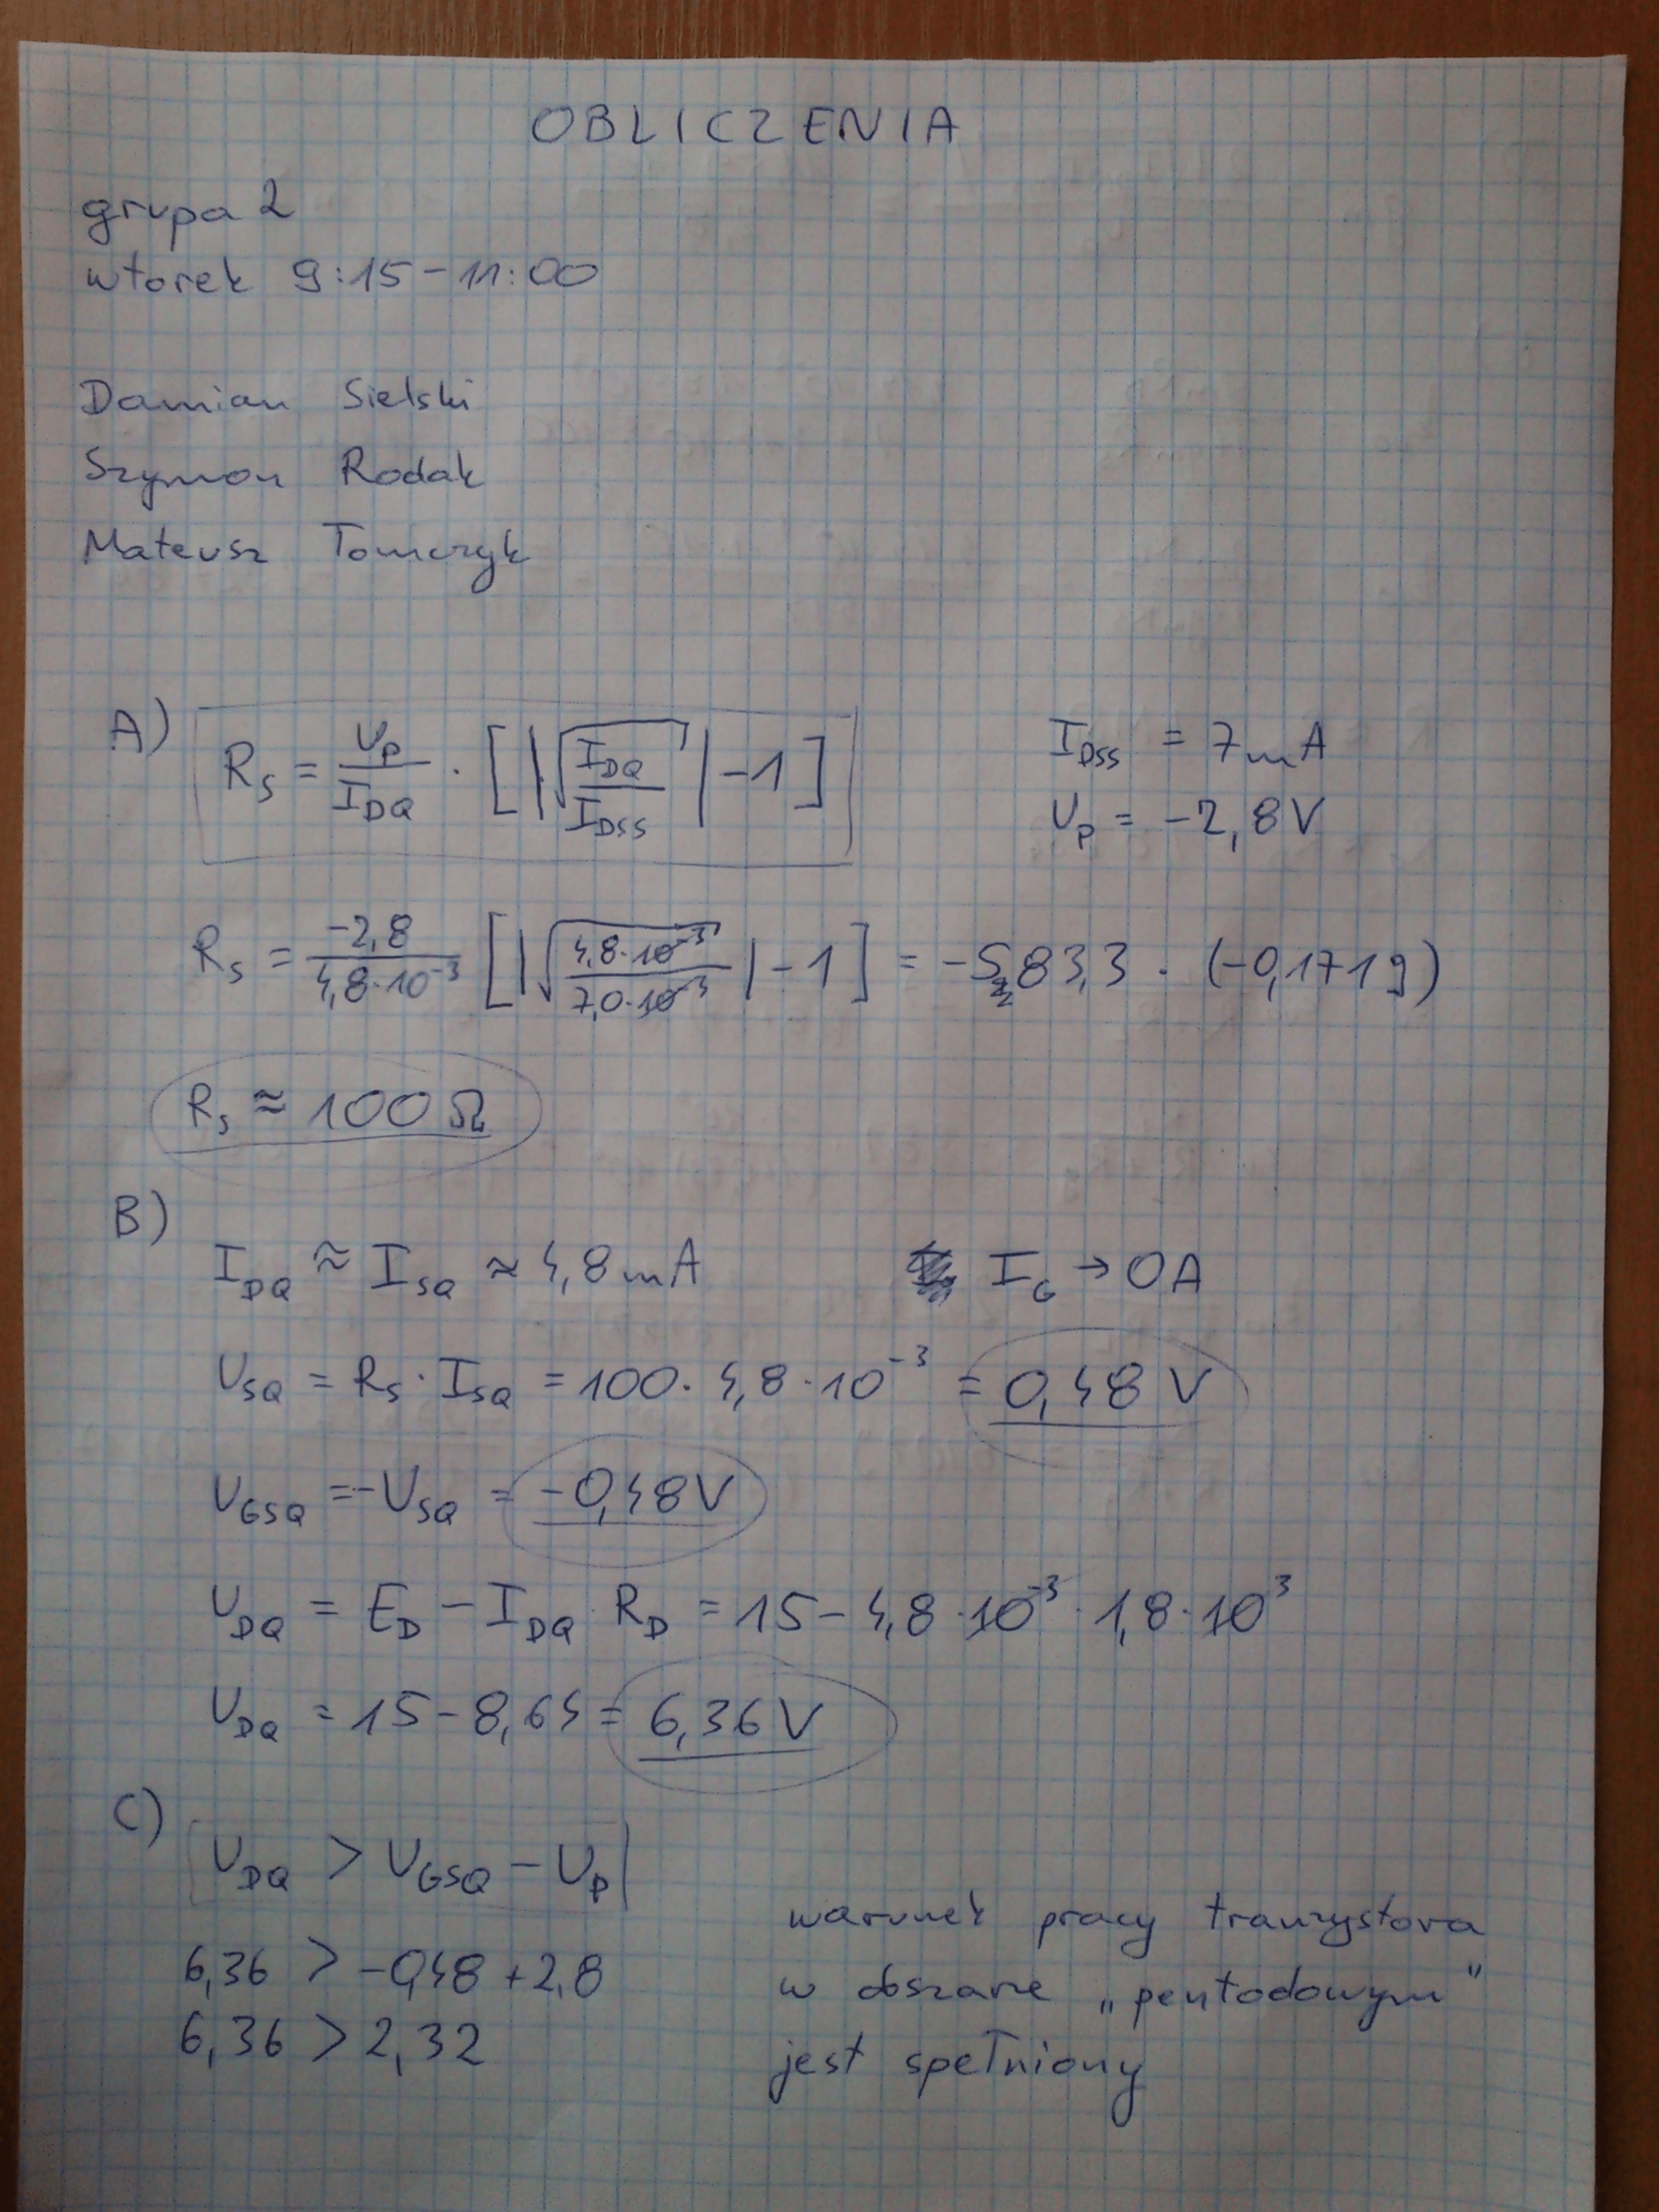 OBLICZENIA
grupa 2
wtorek 9:15-11:00
Damian Sielski
Szymon Rodak
Mateusz Tomczyk
A) R_S = U_P / I_DQ · [|√(I_DQ / I_DSS)| -1] I_DSS = 7mA
U_P = -2,8V
R_S = -2,8 / 4,8·10^-3 [|√(4,8·10^-3 / 7,0·10^-3)| -1] = -583,3 · (-0,1719)
R_S ≈ 100Ω
B)
I_DQ ≈ I_SQ ≈ 4,8mA I_G → 0A
U_SQ = R_S · I_SQ = 100 · 4,8 · 10^-3 = 0,48 V
U_GSQ = -U_SQ = -0,48V
U_DQ = E_D - I_DQ · R_D = 15 - 4,8 · 10^-3 · 1,8 · 10^3
U_DQ = 15 - 8,64 = 6,36V
C)
U_DQ > U_GSQ - U_P
6,36 > -0,48 + 2,8
6,36 > 2,32
warunek pracy tranzystora
w obszarze „pentodowym”
jest spełniony